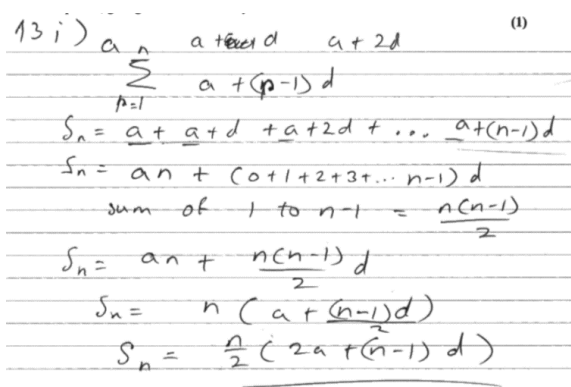 (1)
13 i) a a + d a + 2d
n
∑ a + (p-1) d
p=1
Sₙ = a + a + d + a + 2d + ... a + (n-1) d
Sₙ = an + (0+1+2+3+... n-1) d
sum of 1 to n-1 = n(n-1)/2
Sₙ = an + n(n-1)/2 d
Sₙ = n ( a + (n-1)d/2 )
Sₙ = n/2 ( 2a + (n-1) d )